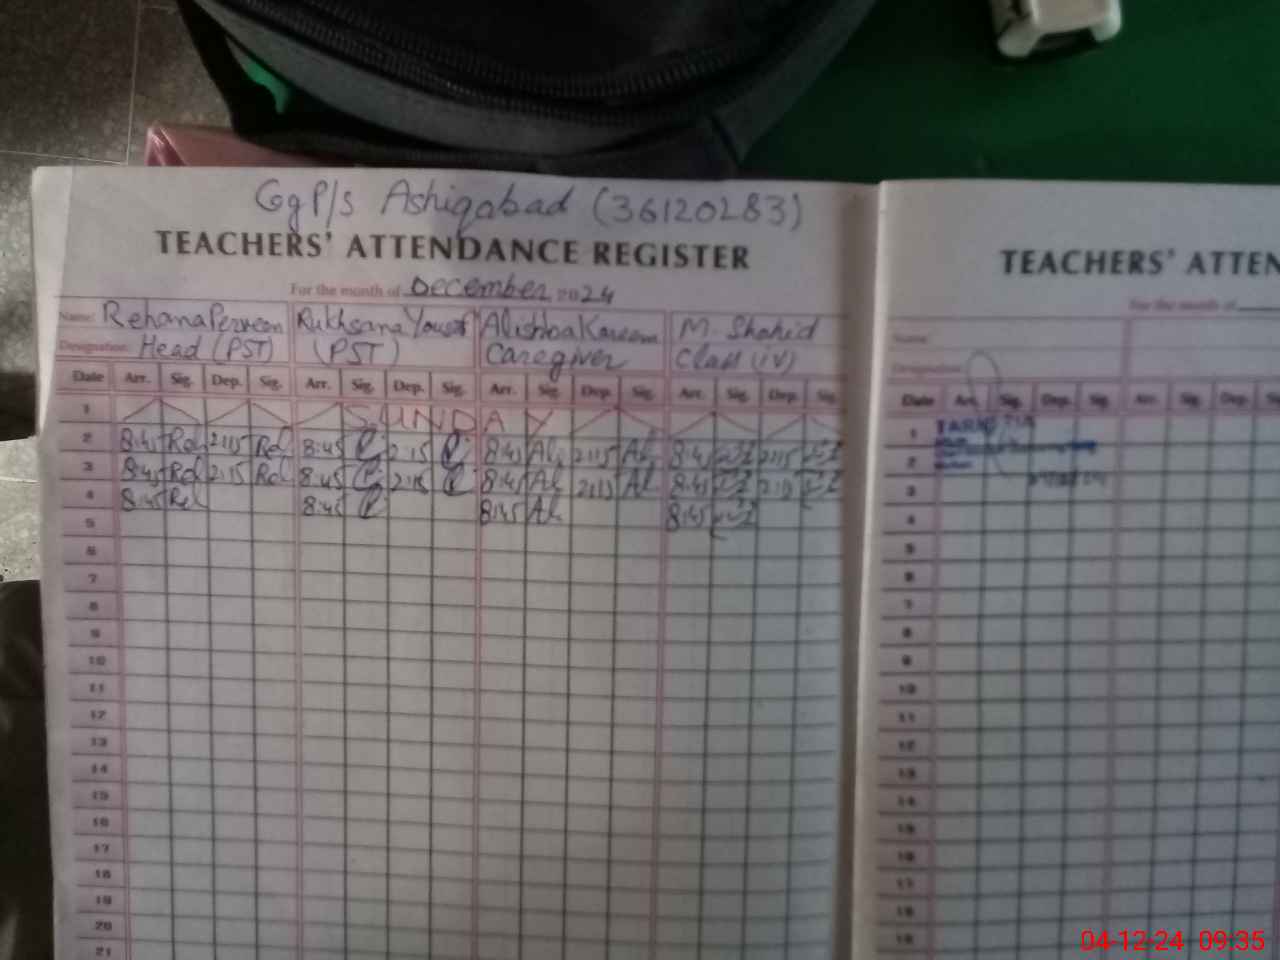 GgP/s Ashiqabad (36120283)
TEACHERS' ATTENDANCE REGISTER
For the month of December 2024
Name: Rehana Perveen Rukhsana Yousaf Alishba Kareem M. Shahid
Designation: Head (PST) (PST) Caregiver Class (iv)
Date Arr. Sig. Dep. Sig. Arr. Sig. Dep. Sig. Arr. Sig. Dep. Sig. Arr. Sig. Dep. Sig.
1 SUNDAY
2 8:45 Reh 2:15 Reh 8:45 2:15 8:45 Al 2:15 Al 8:45 2:15
3 8:45 Reh 2:15 Reh 8:45 2:15 8:45 Al 2:15 Al 8:45 2:15
4 8:45 Reh 8:45 8:45 Al 8:45
5
6
7
8
9
10
11
12
13
14
15
16
17
18
19
20
21
TEACHERS' ATTEN
For the month of
Name:
Designation:
Date Arr. Sig. Dep. Sig. Arr. Sig. Dep. Sig
1
2
3
4
5
6
7
8
9
10
11
12
13
14
15
16
17
18
19
04-12-24 09:35